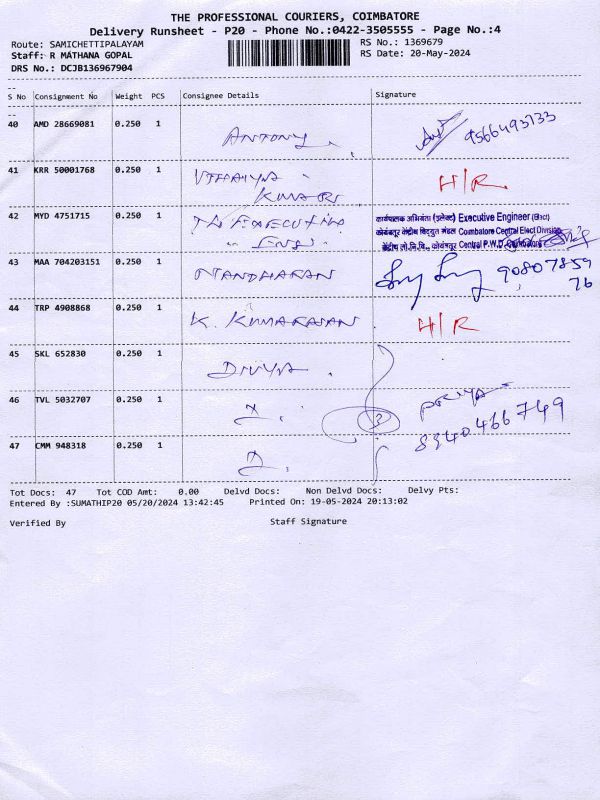 THE PROFESSIONAL COURIERS, COIMBATORE
Delivery Runsheet - P20 - Phone No.:0422-3505555 - Page No.:4
Route: SAMICHETTIPALAYAM RS No.: 1369679
Staff: R MATHANA GOPAL RS Date: 20-May-2024
DRS No.: DCJB136967904
S No Consignment No Weight PCS Consignee Details Signature
40 AMD 28669081 0.250 1 ANTONY 9566493133
41 KRR 50001768 0.250 1 KUMAR H/R
42 MYD 4751715 0.250 1 THE EXECUTIVE ENGI
कार्यपालक अभियंता (इलेक्ट) Executive Engineer (Elect)
कोयंबत्तूर केंद्रीय विद्युत मंडल Coimbatore Central Elect Division
केंद्रीय लो.नि.वि., कोयंबत्तूर Central P.W.D. Coimbatore
43 MAA 704203151 0.250 1 NANDHARAN 90807859
76
44 TRP 4908868 0.250 1 K. KUMARASAN H/R
45 SKL 652830 0.250 1 DIVYA
46 TVL 5032707 0.250 1 3 PRIYA
8340466749
47 CMM 948318 0.250 1
Tot Docs: 47 Tot COD Amt: 0.00 Delvd Docs: Non Delvd Docs: Delvy Pts:
Entered By :SUMATHIP20 05/20/2024 13:42:45 Printed On: 19-05-2024 20:13:02
Verified By Staff Signature